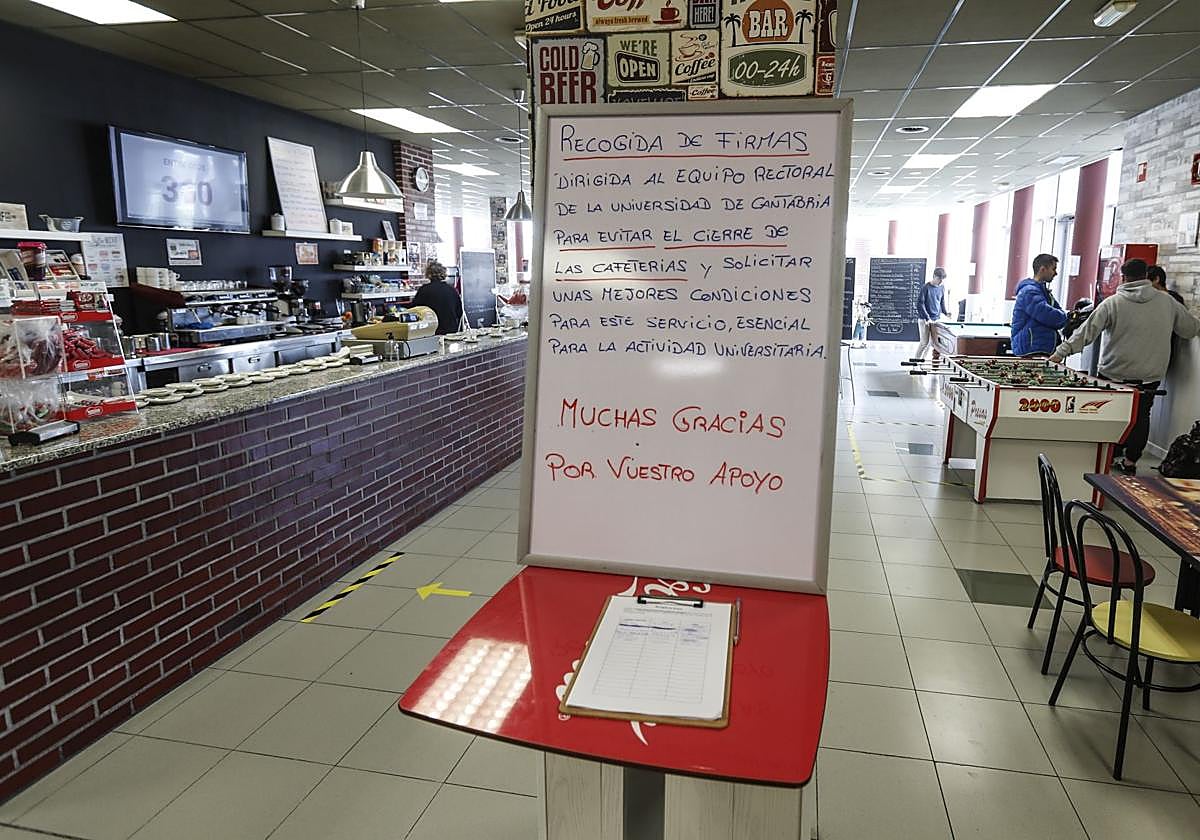 Open 24 hours
always fresh brewed
HERE!
BAR
00-24h
COLD
BEER
WE'RE
OPEN
Coffee
Coffee
RECOGIDA DE FIRMAS
DIRIGIDA AL EQUIPO RECTORAL
DE LA UNIVERSIDAD DE CANTABRIA
PARA EVITAR EL CIERRE DE
LAS CAFETERIAS Y SOLICITAR
UNAS MEJORES CONDICIONES
PARA ESTE SERVICIO, ESENCIAL
PARA LA ACTIVIDAD UNIVERSITARIA.
MUCHAS GRACIAS
POR VUESTRO APOYO
2000